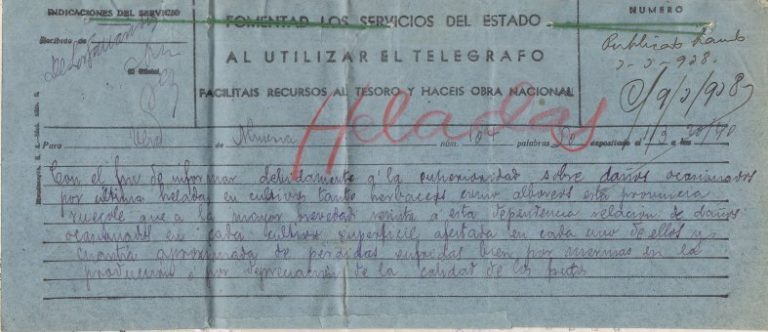 INDICACIONES DEL SERVICIO
FOMENTAD LOS SERVICIOS DEL ESTADO
NUMERO
Recibido de
AL UTILIZAR EL TELEGRAFO
El Oficial,
FACILITAIS RECURSOS AL TESORO Y HACEIS OBRA NACIONAL
Heladas
Para de Almeria núm. palabras depositado el a las
Con el fin de informar debidamente a la superioridad sobre daños ocasionados
por última helada en cultivos tanto herbaceos como alboreos esta provincia
ruegole que a la mayor brevedad remita a esta dependencia relación de daños
ocasionados en cada cultivo superficie afectada en cada uno de ellos y
cuantia aproximada de pérdidas sufridas bien por mermas en la
producción o por depreciación de la calidad de los frutos